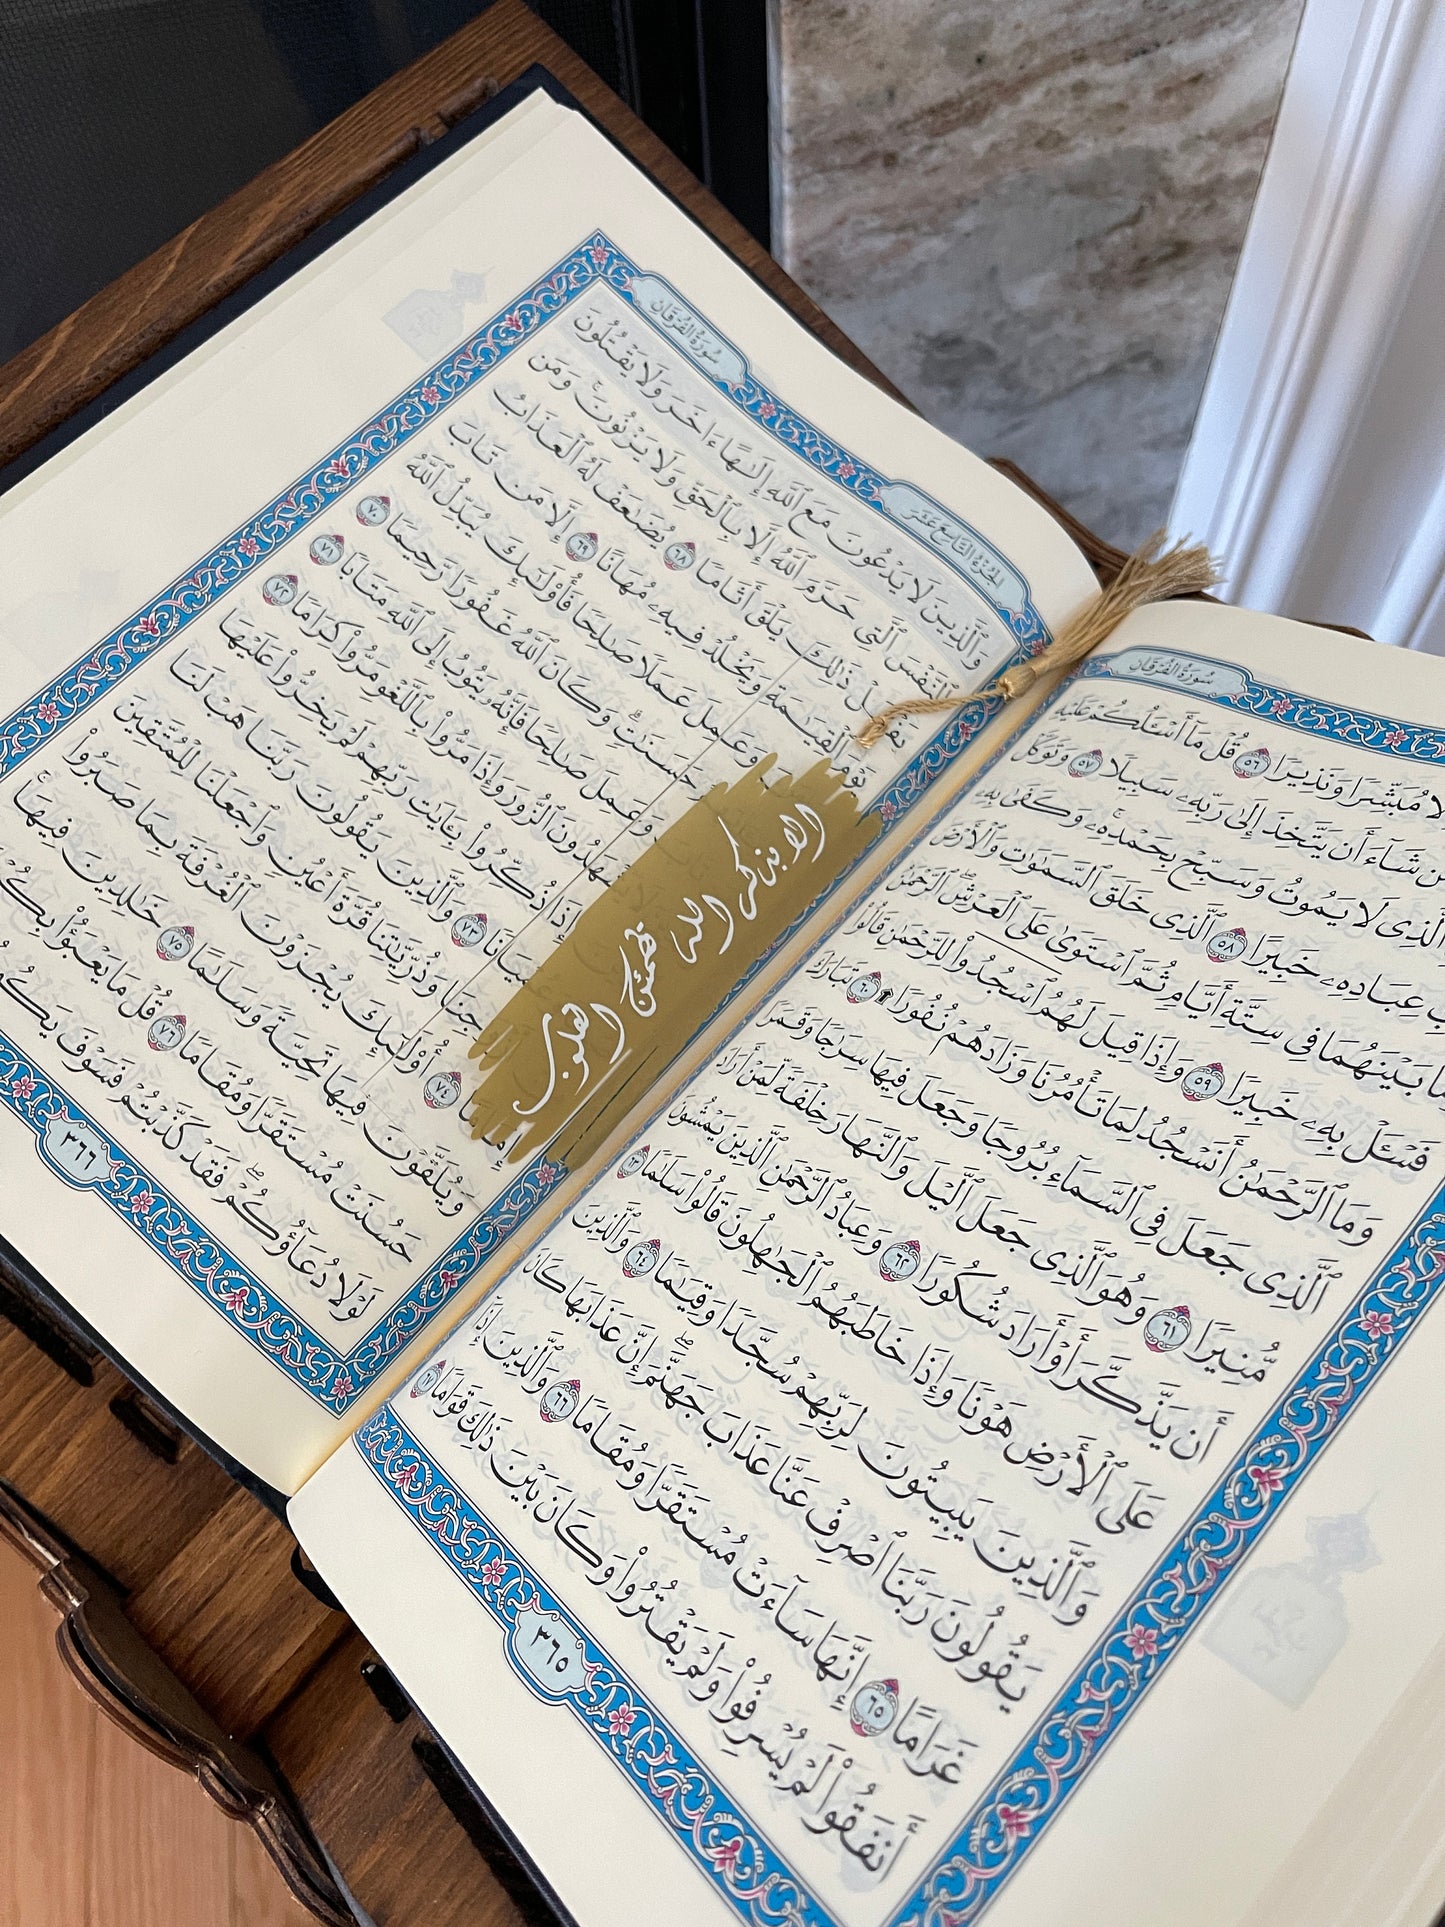 سُورَةُ الفُرْقَانِ
مُبَشِّرًا وَنَذِيرًا ٥٦ قُلْ مَآ أَسْـَٔلُكُمْ عَلَيْهِ
شَآءَ أَن يَتَّخِذَ إِلَىٰ رَبِّهِۦ سَبِيلًا ٥٧ وَتَوَكَّلْ
ٱلَّذِى لَا يَمُوتُ وَسَبِّحْ بِحَمْدِهِۦ ۚ وَكَفَىٰ بِهِۦ
عِبَادِهِۦ خَبِيرًا ٥٨ ٱلَّذِى خَلَقَ ٱلسَّمَٰوَٰتِ وَٱلْأَرْضَ
بَيْنَهُمَا فِى سِتَّةِ أَيَّامٍ ثُمَّ ٱسْتَوَىٰ عَلَى ٱلْعَرْشِ ۚ ٱلرَّحْمَٰنُ
فَسْـَٔلْ بِهِۦ خَبِيرًا ٥٩ وَإِذَا قِيلَ لَهُمُ ٱسْجُدُوا۟ لِلرَّحْمَٰنِ قَالُوا۟
وَمَا ٱلرَّحْمَٰنُ أَنَسْجُدُ لِمَا تَأْمُرُنَا وَزَادَهُمْ نُفُورًا ٦٠ تَبَارَكَ
ٱلَّذِى جَعَلَ فِى ٱلسَّمَآءِ بُرُوجًا وَجَعَلَ فِيهَا سِرَٰجًا وَقَمَرًا
مُّنِيرًا ٦١ وَهُوَ ٱلَّذِى جَعَلَ ٱلَّيْلَ وَٱلنَّهَارَ خِلْفَةً لِّمَنْ أَرَادَ
أَن يَذَّكَّرَ أَوْ أَرَادَ شُكُورًا ٦٢ وَعِبَادُ ٱلرَّحْمَٰنِ ٱلَّذِينَ يَمْشُونَ
عَلَى ٱلْأَرْضِ هَوْنًا وَإِذَا خَاطَبَهُمُ ٱلْجَٰهِلُونَ قَالُوا۟ سَلَٰمًا ٦٣
وَٱلَّذِينَ يَبِيتُونَ لِرَبِّهِمْ سُجَّدًا وَقِيَٰمًا ٦٤ وَٱلَّذِينَ
يَقُولُونَ رَبَّنَا ٱصْرِفْ عَنَّا عَذَابَ جَهَنَّمَ ۖ إِنَّ عَذَابَهَا كَانَ
غَرَامًا ٦٥ إِنَّهَا سَآءَتْ مُسْتَقَرًّا وَمُقَامًا ٦٦ وَٱلَّذِينَ إِذَآ
أَنفَقُوا۟ لَمْ يُسْرِفُوا۟ وَلَمْ يَقْتُرُوا۟ وَكَانَ بَيْنَ ذَٰلِكَ قَوَامًا ٦٧
٣٦٥
الجُزْءُ التَّاسِعَ عَشَرَ
سُورَةُ الفُرْقَانِ
وَٱلَّذِينَ لَا يَدْعُونَ مَعَ ٱللَّهِ إِلَٰهًا ءَاخَرَ وَلَا يَقْتُلُونَ
ٱلنَّفْسَ ٱلَّتِى حَرَّمَ ٱللَّهُ إِلَّا بِٱلْحَقِّ وَلَا يَزْنُونَ ۚ وَمَن
يَفْعَلْ ذَٰلِكَ يَلْقَ أَثَامًا ٦٨ يُضَٰعَفْ لَهُ ٱلْعَذَابُ
يَوْمَ ٱلْقِيَٰمَةِ وَيَخْلُدْ فِيهِۦ مُهَانًا ٦٩ إِلَّا مَن تَابَ
وَعَمِلَ عَمَلًا صَٰلِحًا فَأُو۟لَٰٓئِكَ يُبَدِّلُ ٱللَّهُ
حَسَنَٰتٍ ۗ وَكَانَ ٱللَّهُ غَفُورًا رَّحِيمًا ٧٠
وَعَمِلَ صَٰلِحًا فَإِنَّهُۥ يَتُوبُ إِلَى ٱللَّهِ مَتَابًا ٧١
يَشْهَدُونَ ٱلزُّورَ وَإِذَا مَرُّوا۟ بِٱللَّغْوِ مَرُّوا۟ كِرَامًا ٧٢
إِذَا ذُكِّرُوا۟ بِـَٔايَٰتِ رَبِّهِمْ لَمْ يَخِرُّوا۟ عَلَيْهَا
عُمْيَانًا ٧٣ وَٱلَّذِينَ يَقُولُونَ رَبَّنَا هَبْ لَنَا
وَذُرِّيَّٰتِنَا قُرَّةَ أَعْيُنٍ وَٱجْعَلْنَا لِلْمُتَّقِينَ
إِمَامًا ٧٤ أُو۟لَٰٓئِكَ يُجْزَوْنَ ٱلْغُرْفَةَ بِمَا صَبَرُوا۟
وَيُلَقَّوْنَ فِيهَا تَحِيَّةً وَسَلَٰمًا ٧٥ خَٰلِدِينَ فِيهَا ۚ
حَسُنَتْ مُسْتَقَرًّا وَمُقَامًا ٧٦ قُلْ مَا يَعْبَؤُا۟ بِكُمْ
لَوْلَا دُعَآؤُكُمْ ۖ فَقَدْ كَذَّبْتُمْ فَسَوْفَ يَكُونُ
٣٦٦
الا بذكر الله تطمئن القلوب